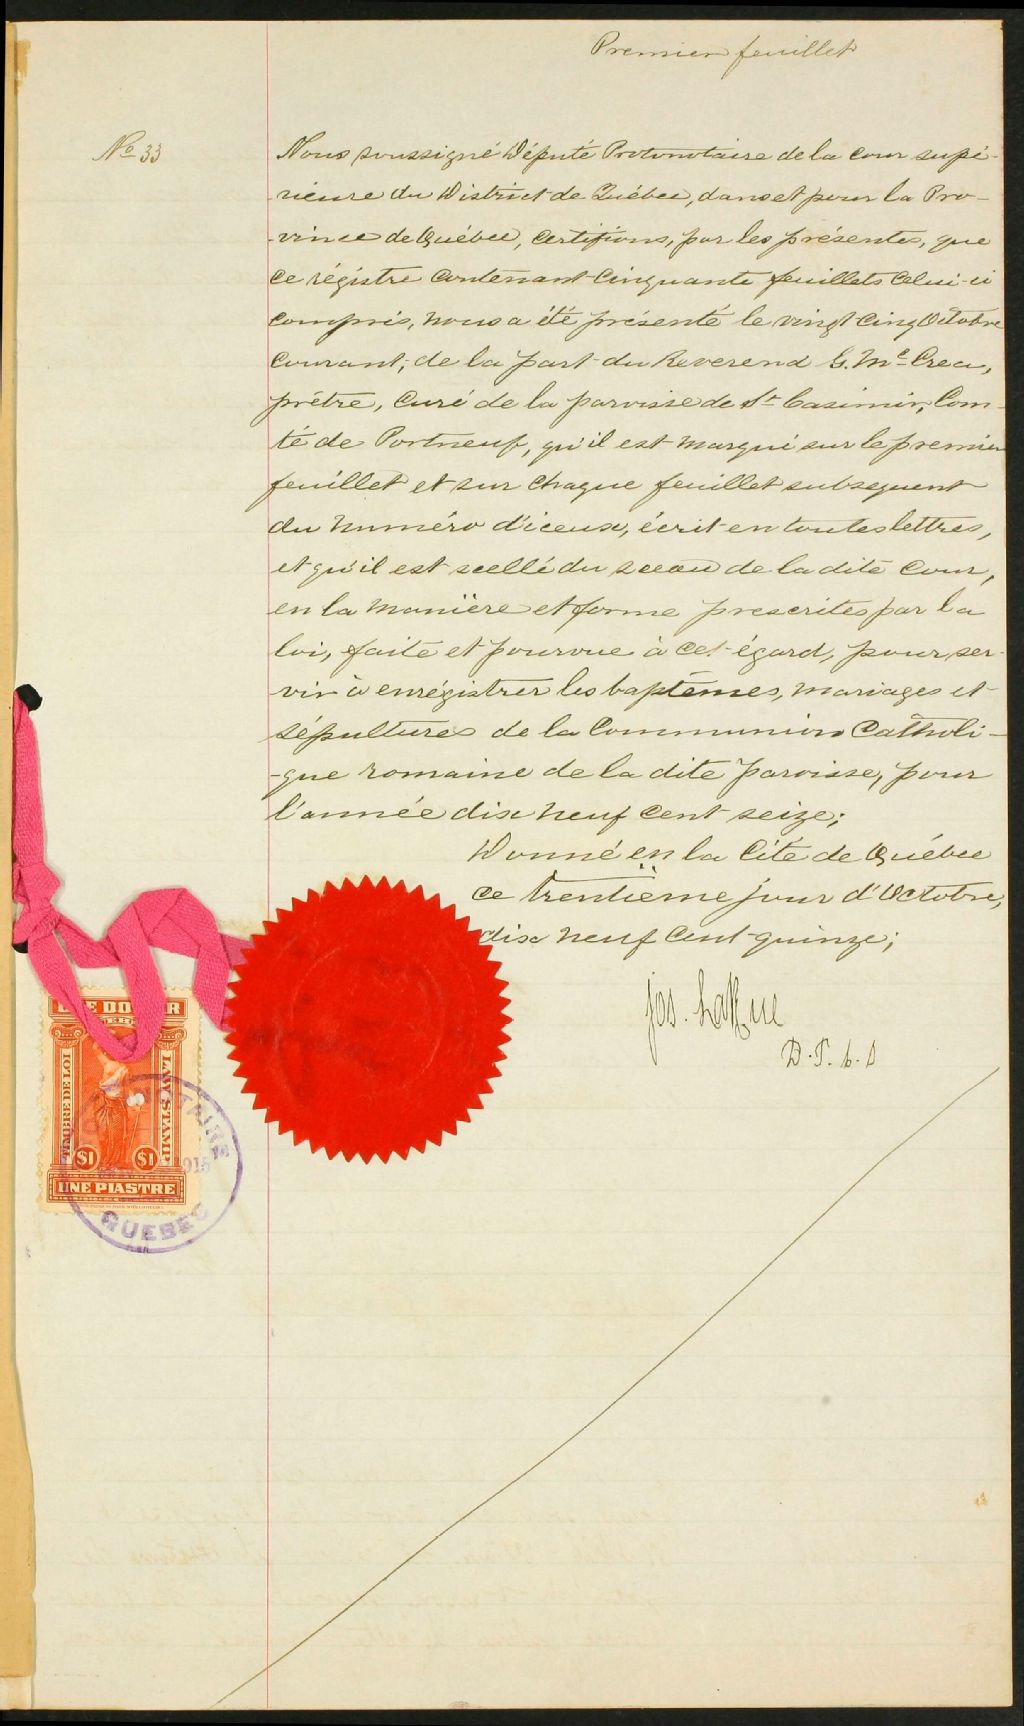 Premier feuillet
No 33
Nous soussigné Député Protonotaire de la cour supé-
rieure du District de Québec, dans et pour la Pro-
-vince de Québec, certifions, par les présentes, que
ce régistre contenant cinquante feuillets celui-ci
compris, nous a été présenté le vingt-cinq Octobre
courant, de la part du Reverend G. Mc Crea,
prêtre, curé de la paroisse de St Casimir, Com-
té de Portneuf, qu'il est marqué sur le premier
feuillet et sur chaque feuillet subsequent
du numéro d'iceux, écrit en toutes lettres,
et qu'il est scellé du sceau de la dite Cour,
en la manière et forme prescrites par la
loi, faite et pourvue à cet égard, pour ser-
vir à enrégistrer les baptêmes, mariages et
sépultures de la Communion Catholi-
-que romaine de la dite paroisse, pour
l'année dix neuf cent seize;
Donné en la Cité de Québec
ce trentième jour d'Octobre,
dix neuf cent quinze;
Jos. LaRue
D.P.C.S
DOLLAR
TIMBRE DE LOI
LAW STAMP
$1 $1
UNE PIASTRE
QUEBEC